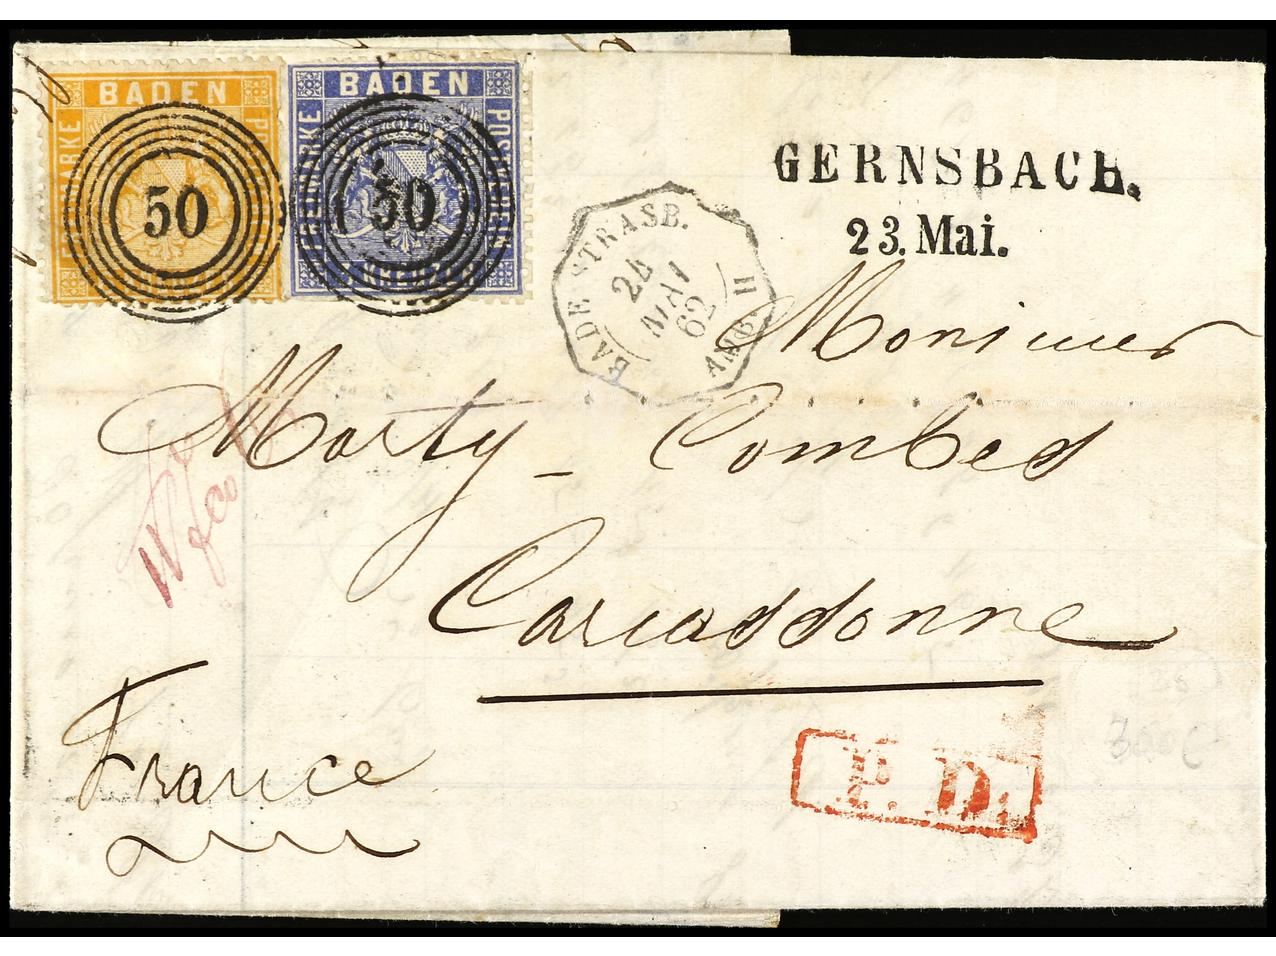 BADEN
FREIMARKE
POSTVEREIN
50
BADEN
FREIMARKE
POSTVEREIN
KREUZER
50
GERNSBACH.
23. Mai.
BADE STRASB.
24
MAI
62
AMB. II
Monsieur
Marty-Combes
Carcassonne
France
P.D.
300€